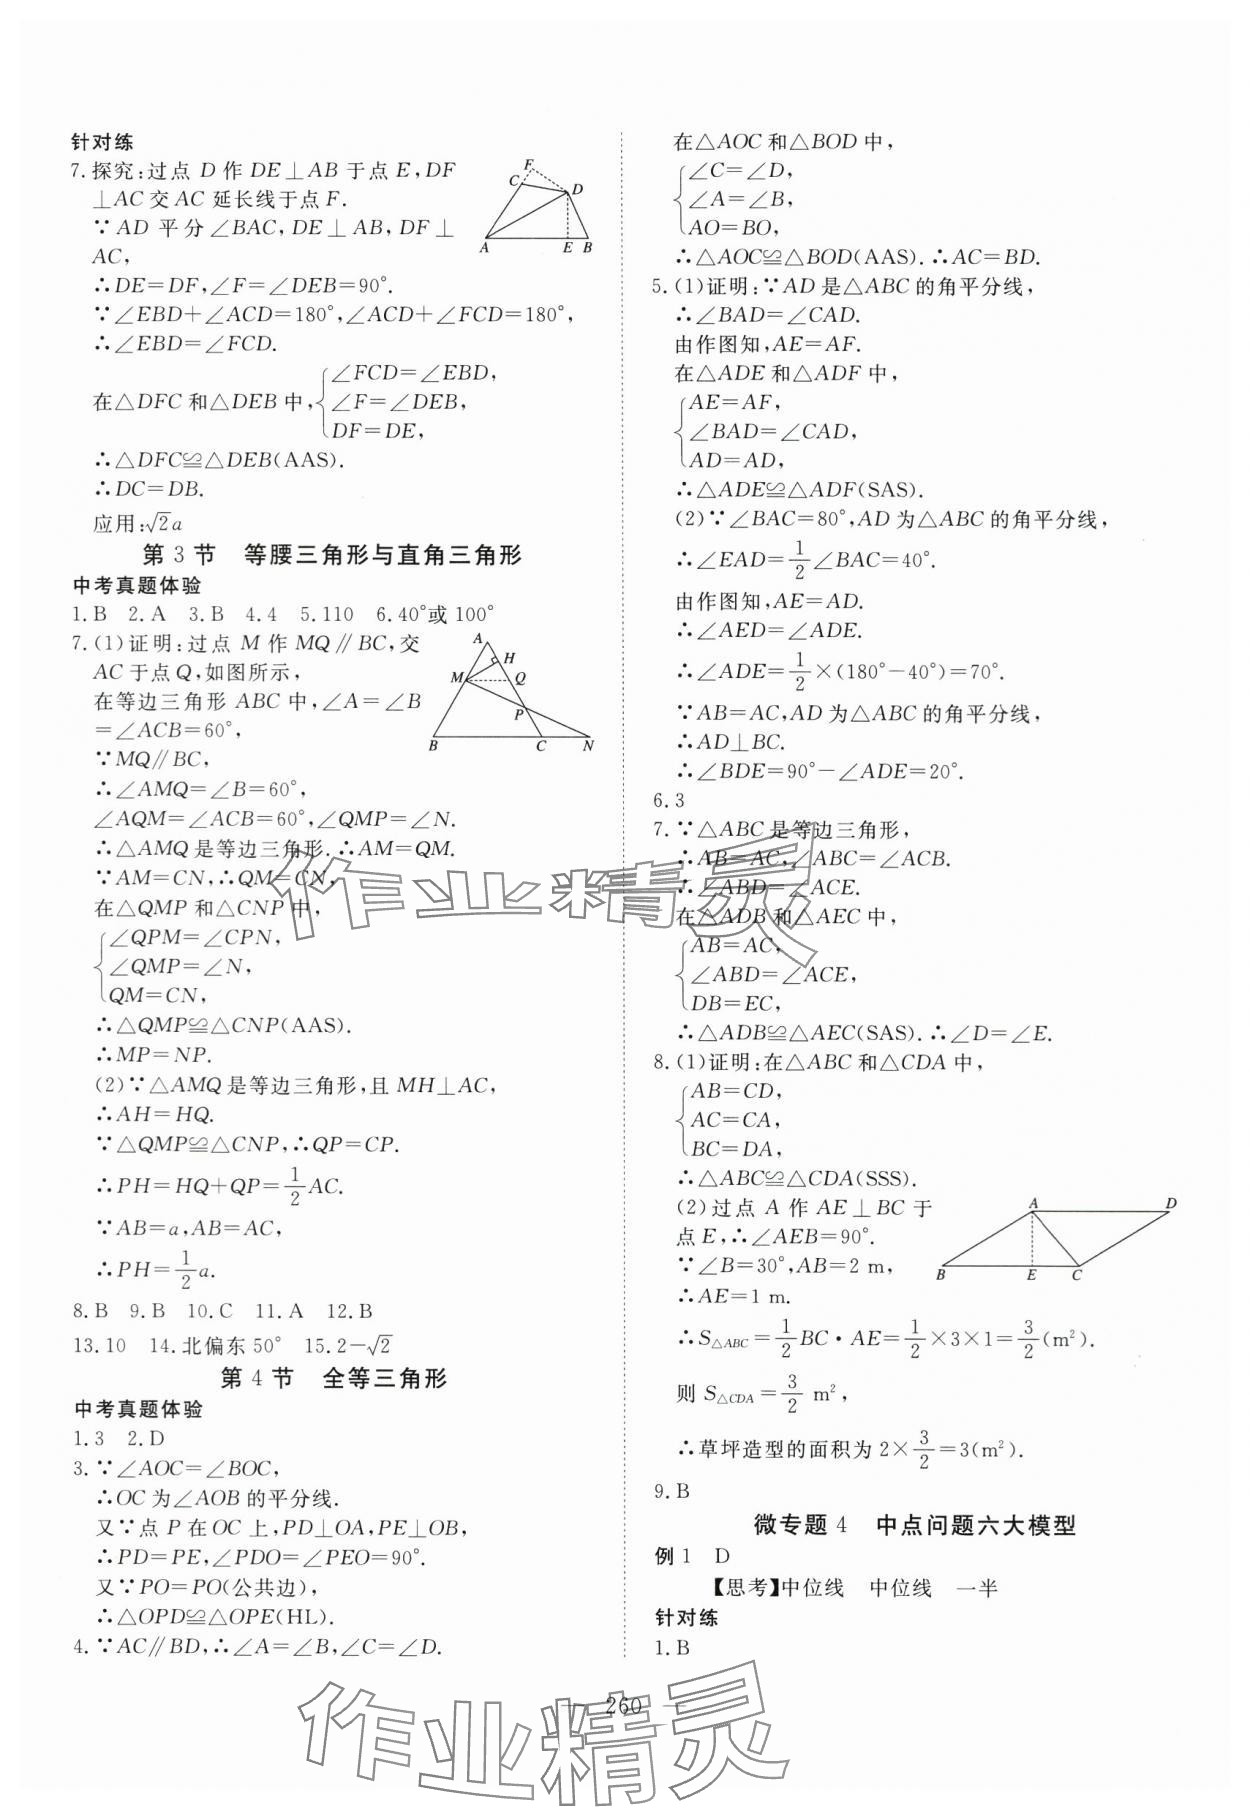 针对练
7.探究:过点 D 作 DE⊥AB 于点 E,DF
⊥AC 交 AC 延长线于点 F.
∵AD 平分∠BAC,DE⊥AB,DF⊥
AC,
∴DE=DF,∠F=∠DEB=90°.
∵∠EBD+∠ACD=180°,∠ACD+∠FCD=180°,
∴∠EBD=∠FCD.
在△DFC 和△DEB 中,{∠FCD=∠EBD,
∠F=∠DEB,
DF=DE,
∴△DFC≌△DEB(AAS).
∴DC=DB.
应用:√2a
F
C
D
A
E
B
第 3 节 等腰三角形与直角三角形
中考真题体验
1.B 2.A 3.B 4.4 5.110 6.40°或100°
7.(1)证明:过点 M 作 MQ∥BC,交
AC 于点 Q,如图所示,
在等边三角形 ABC 中,∠A=∠B
=∠ACB=60°,
∵MQ∥BC,
∴∠AMQ=∠B=60°,
∠AQM=∠ACB=60°,∠QMP=∠N.
∴△AMQ 是等边三角形.∴AM=QM.
∵AM=CN,∴QM=CN,
在△QMP 和△CNP 中,
{∠QPM=∠CPN,
∠QMP=∠N,
QM=CN,
∴△QMP≌△CNP(AAS).
∴MP=NP.
(2)∵△AMQ 是等边三角形,且 MH⊥AC,
∴AH=HQ.
∵△QMP≌△CNP,∴QP=CP.
∴PH=HQ+QP=1/2AC.
∵AB=a,AB=AC,
∴PH=1/2a.
A
H
M
Q
P
B
C
N
8.B 9.B 10.C 11.A 12.B
13.10 14.北偏东50° 15.2-√2
第 4 节 全等三角形
中考真题体验
1.3 2.D
3.∵∠AOC=∠BOC,
∴OC 为∠AOB 的平分线.
又∵点 P 在 OC 上,PD⊥OA,PE⊥OB,
∴PD=PE,∠PDO=∠PEO=90°.
又∵PO=PO(公共边),
∴△OPD≌△OPE(HL).
4.∵AC∥BD,∴∠A=∠B,∠C=∠D.
在△AOC 和△BOD 中,
{∠C=∠D,
∠A=∠B,
AO=BO,
∴△AOC≌△BOD(AAS).∴AC=BD.
5.(1)证明:∵AD 是△ABC 的角平分线,
∴∠BAD=∠CAD.
由作图知,AE=AF.
在△ADE 和△ADF 中,
{AE=AF,
∠BAD=∠CAD,
AD=AD,
∴△ADE≌△ADF(SAS).
(2)∵∠BAC=80°,AD 为△ABC 的角平分线,
∴∠EAD=1/2∠BAC=40°.
由作图知,AE=AD.
∴∠AED=∠ADE.
∴∠ADE=1/2×(180°-40°)=70°.
∵AB=AC,AD 为△ABC 的角平分线,
∴AD⊥BC.
∴∠BDE=90°-∠ADE=20°.
6.3
7.∵△ABC 是等边三角形,
∴AB=AC,∠ABC=∠ACB.
∴∠ABD=∠ACE.
在△ADB 和△AEC 中,
{AB=AC,
∠ABD=∠ACE,
DB=EC,
∴△ADB≌△AEC(SAS).∴∠D=∠E.
8.(1)证明:在△ABC 和△CDA 中,
{AB=CD,
AC=CA,
BC=DA,
∴△ABC≌△CDA(SSS).
(2)过点 A 作 AE⊥BC 于
点 E,∴∠AEB=90°.
∵∠B=30°,AB=2 m,
∴AE=1 m.
A
D
B
E
C
∴S△ABC=1/2BC·AE=1/2×3×1=3/2(m²).
则 S△CDA=3/2 m²,
∴草坪造型的面积为 2×3/2=3(m²).
9.B
微专题 4 中点问题六大模型
例 1 D
【思考】中位线 中位线 一半
针对练
1.B
260
作业精灵
作业精灵